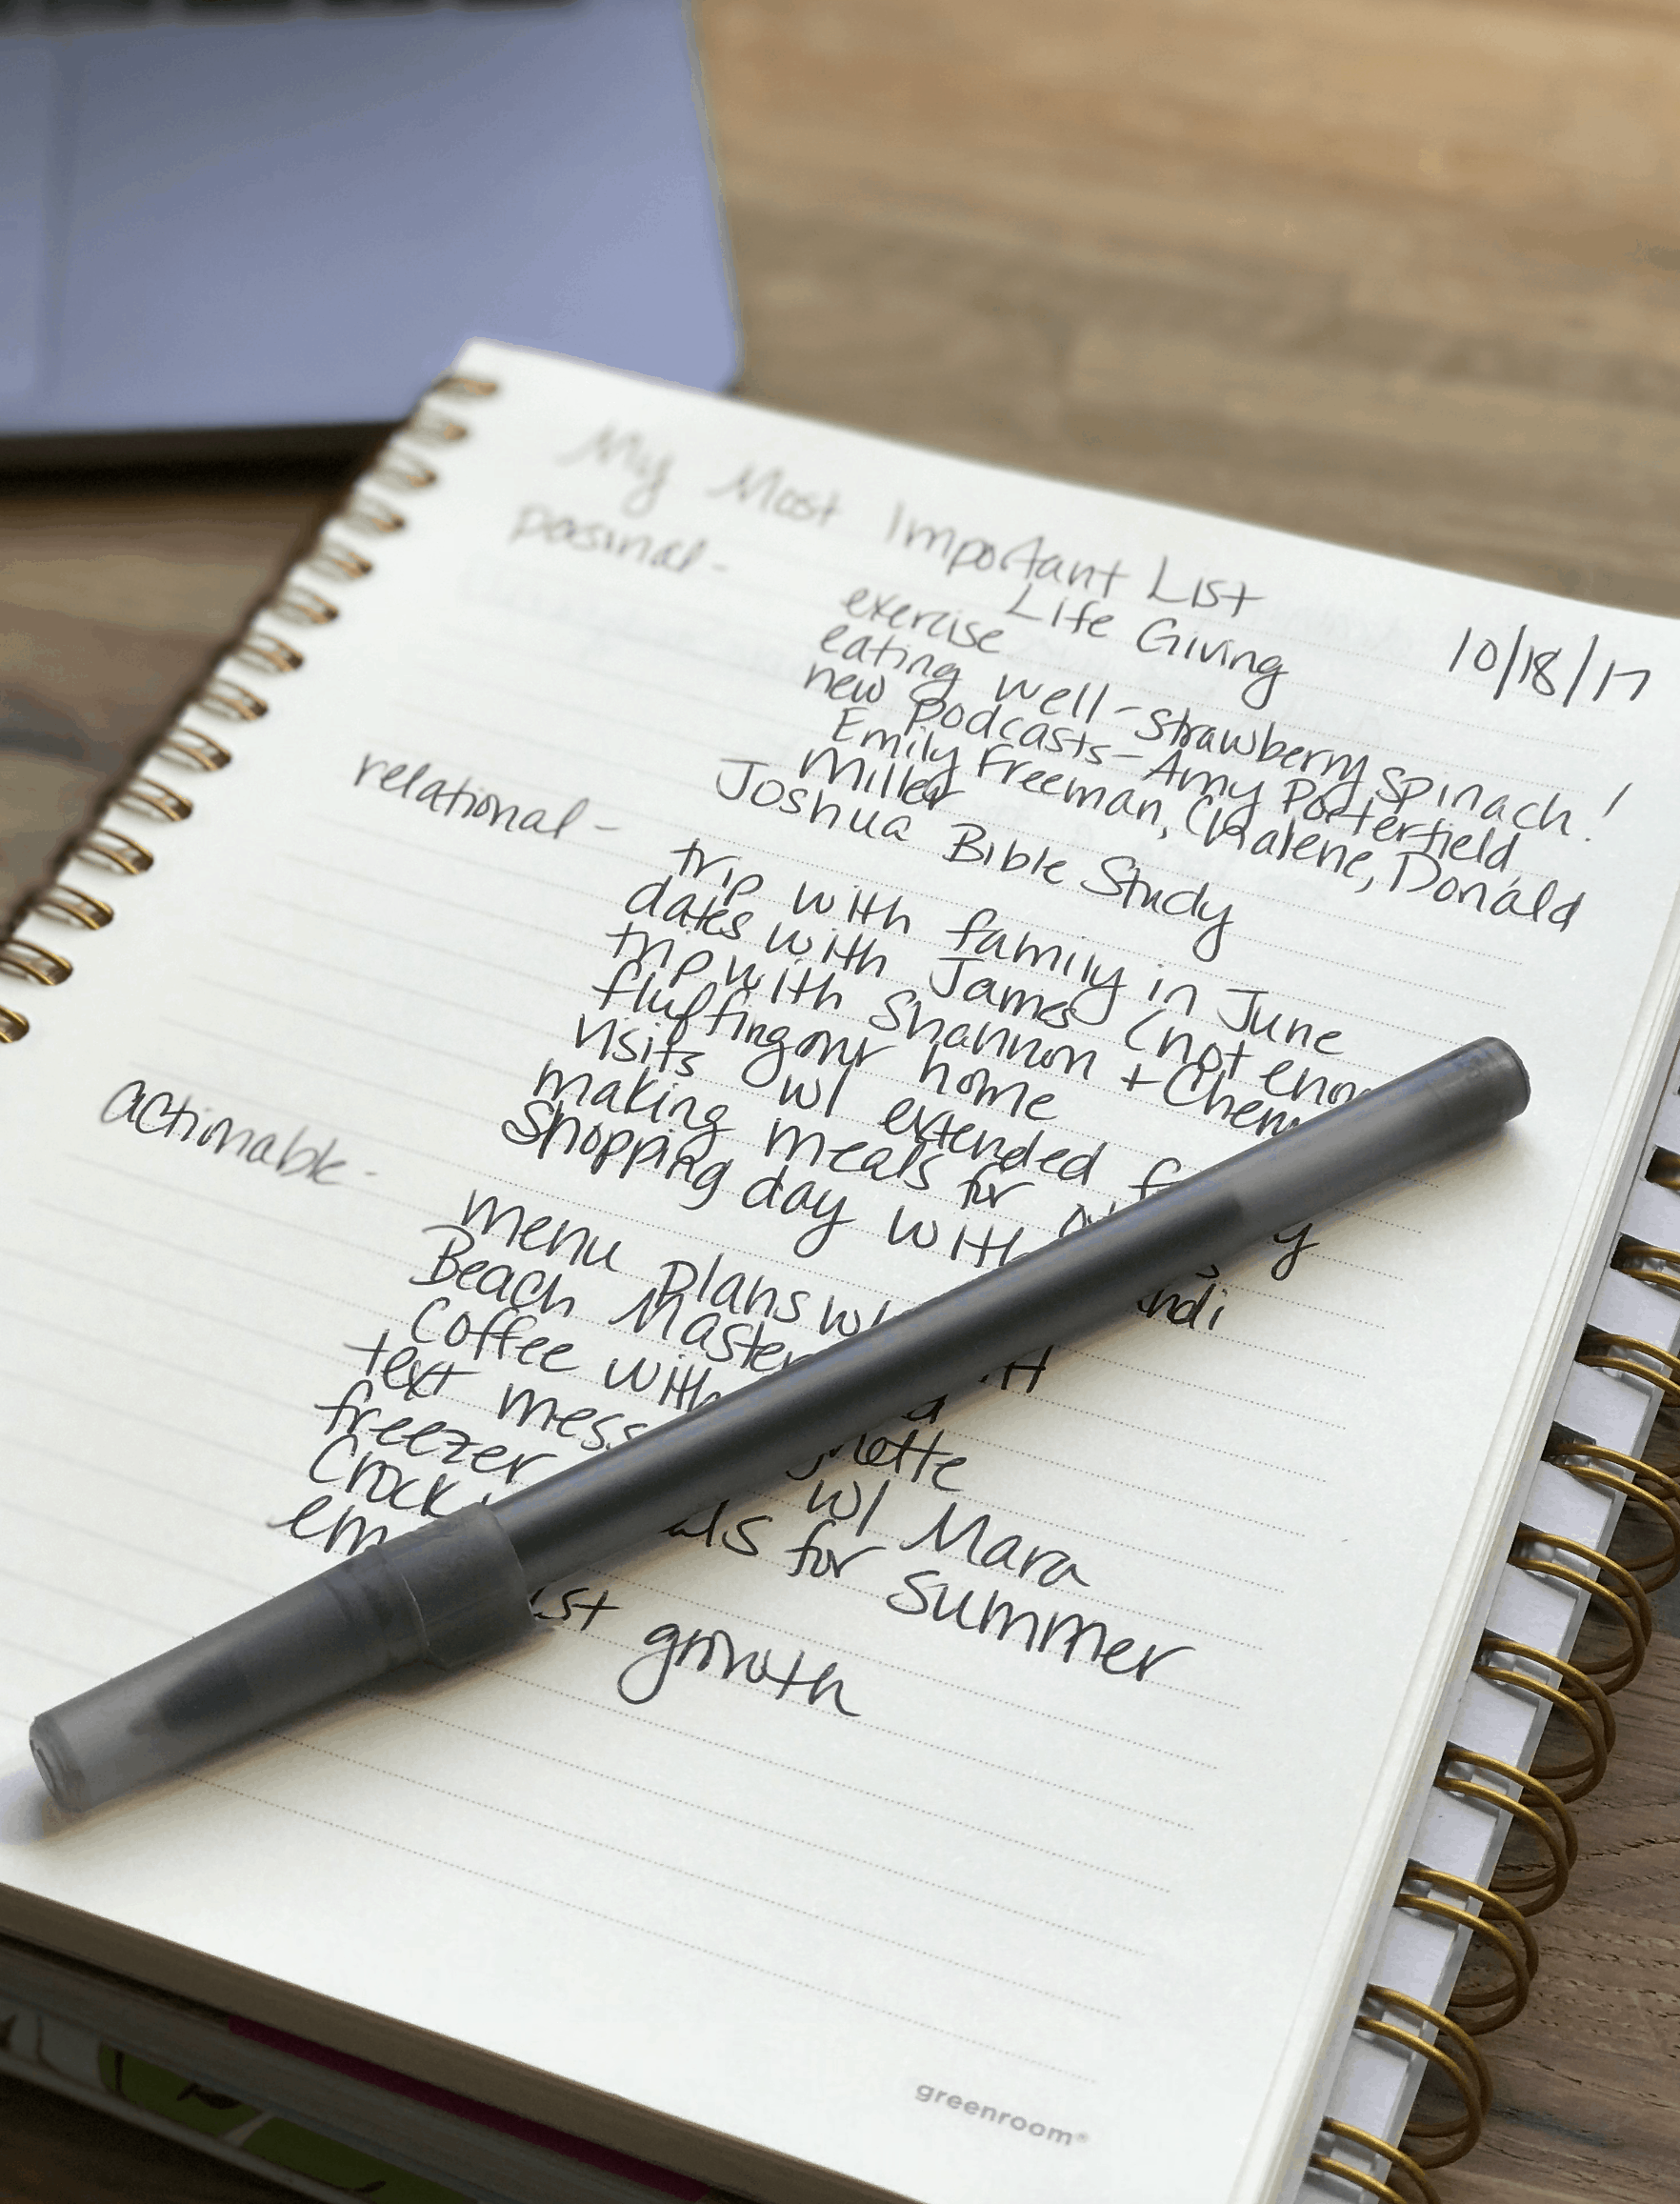 My Most Important List
Life Giving 10/18/17
personal -
exercise
eating well - strawberry spinach!
new podcasts - Amy Porterfield,
Emily Freeman, Chalene, Donald
Miller
Joshua Bible Study
relational -
trip with family in June
dates with James (not
trip with Shannon +
fluffing our home
visits w/ extended
making meals for
shopping day with
actionable -
menu plans w/
Beach Master
Coffee with
text
freezer w/ Mara
Crock for summer
growth
greenroom®